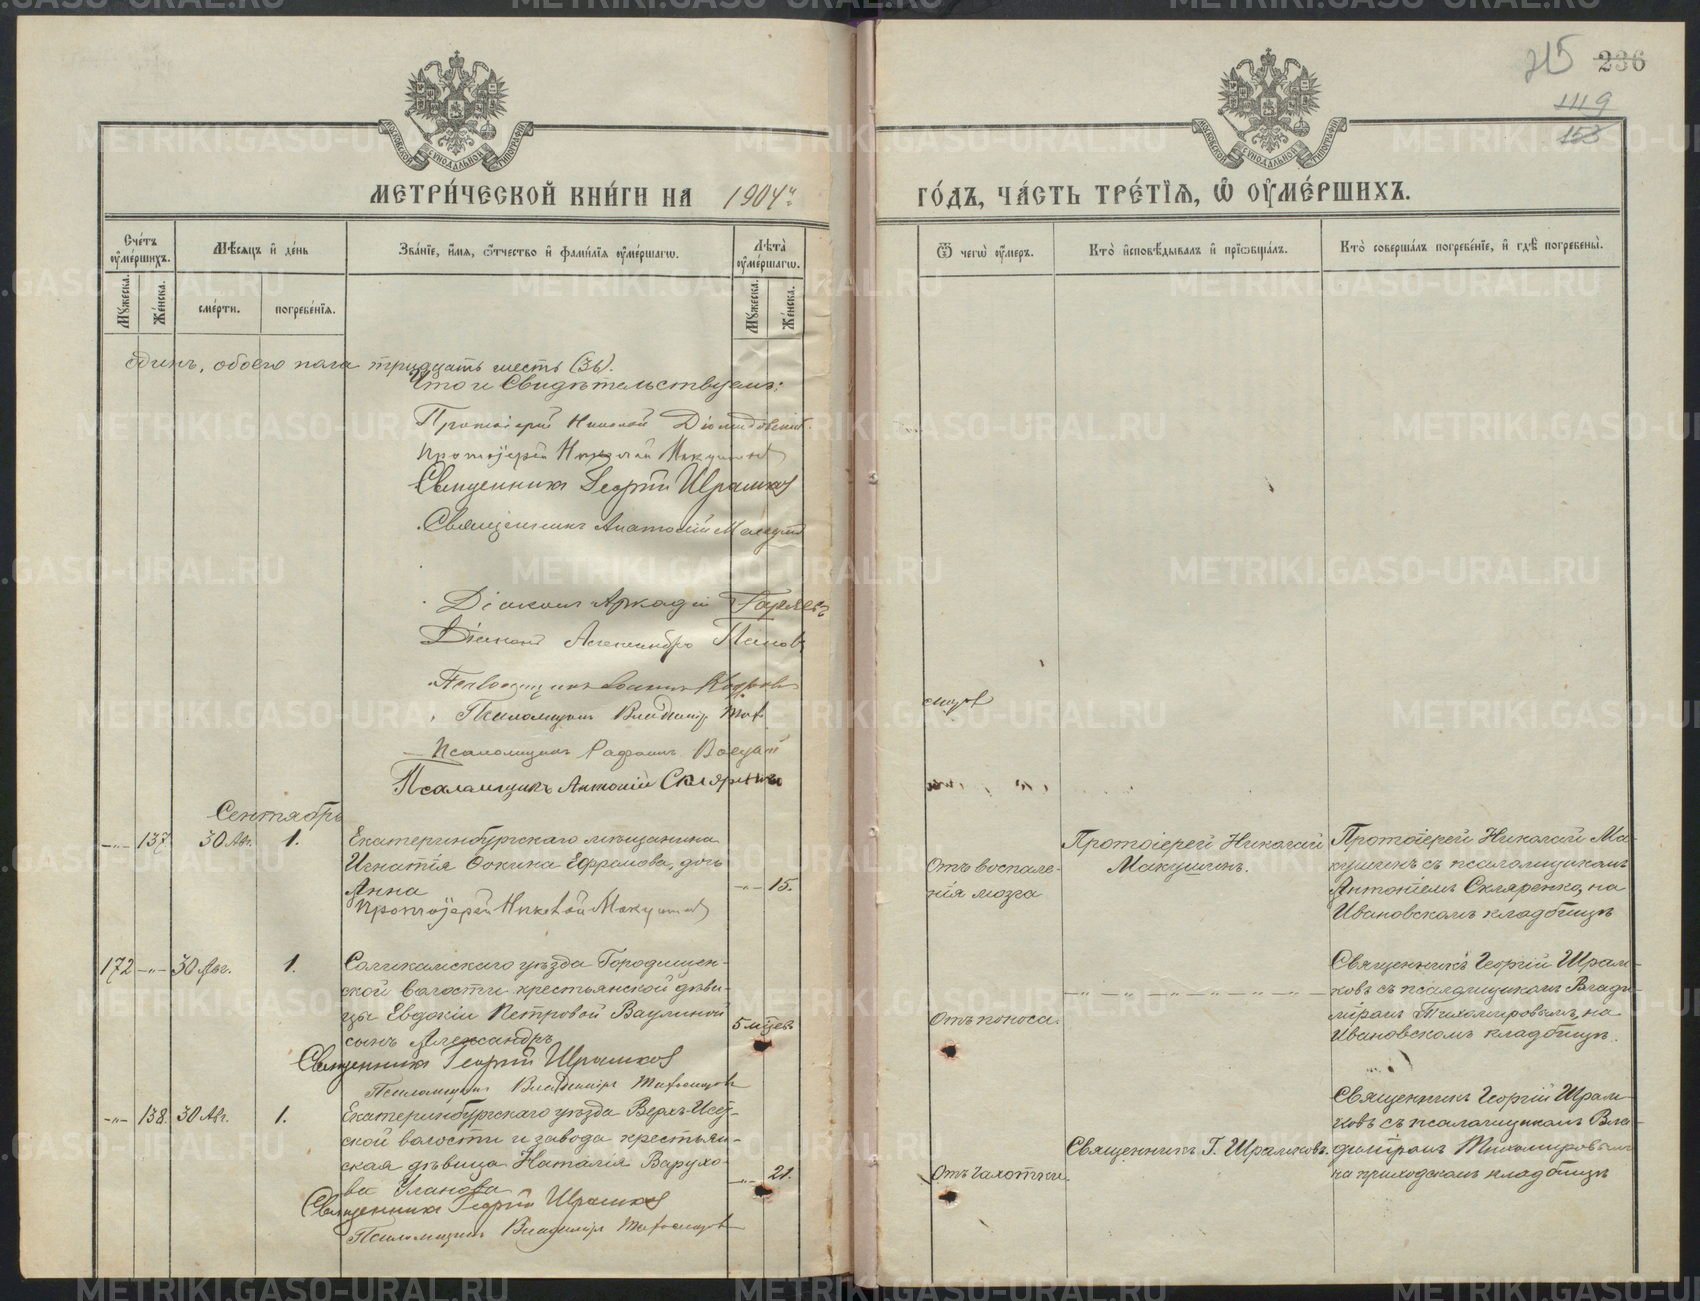 215 236
1119
153
МОСКОВСКОЙ СѴНОДАЛЬНОЙ ТИПОГРАФІИ
МОСКОВСКОЙ СѴНОДАЛЬНОЙ ТИПОГРАФІИ
МЕТРИ́ЧЕСКОЙ КНИ́ГИ НА 1904й
ГО́ДЪ, ЧА́СТЬ ТРЕ́ТІѦ, Ѡ҆ ОУ҆МЕ́РШИХЪ.
Сче́тъ оу҆ме́ршихъ.
Мѣ́сяцъ и҆ де́нь
Зва́ніе, и҆́мя, ѻ҆́тчество и҆ фами́лія оу҆ме́ршагѡ.
Лѣ́та оу҆ме́ршагѡ.
Ѿ чегѡ̀ оу҆́меръ.
Кто̀ и҆сповѣ́дывалъ и҆ прїѡбща́лъ.
Кто̀ соверша́лъ погребе́ніе, и҆ гдѣ̀ погребены̀.
Мꙋ́жеска.
Же́нска.
сме́рти.
погребе́нія.
Мꙋ́жеска.
Же́нска.
одинъ, обоего пола тридцать шесть (36).
Что и свидѣтельствуемъ:
Протоіерей Николай Діомидовскій
Протоіерей Николай Макушинъ
Священникъ Георгій Шрамковъ
Священникъ Анатолій
Діаконъ Аркадій Гаряевъ
Діаконъ Александръ Поповъ
Псаломщикъ
Псаломщикъ Владиміръ Тихо
Псаломщикъ
Псаломщикъ Антоній Скляренко
Сентябрь
137 30 Авг. 1. Екатеринбургскаго мѣщанина
Игнатія Фокина Ефремова, дочь
Анна 15.
Протоіерей Николай Макушинъ
Отъ воспале-
нія мозга
Протоіерей Николай
Макушинъ.
Протоіерей Николай Ма-
кушинъ съ псаломщикомъ
Антоніемъ Скляренко, на
Ивановскомъ кладбищѣ
172 30 Авг. 1. Соликамскаго уѣзда Городищен-
ской волости крестьянской дѣви-
цы Евдокіи Петровой Ваулиной
сынъ Александръ 5 мѣсяцевъ
Священникъ Георгій Шрамковъ
Псаломщикъ Владиміръ Тихомировъ
Отъ поноса.
Священникъ Георгій Шрам-
ковъ съ псаломщикомъ Влади-
міромъ Тихомировымъ, на
Ивановскомъ кладбищѣ.
138. 30 Авг. 1. Екатеринбургскаго уѣзда Верхъ-Исет-
ской волости и завода крестьян-
ская дѣвица Наталія Варухо-
ва Уланова 21.
Священникъ Георгій Шрамковъ
Псаломщикъ Владиміръ Тихомировъ
Отъ чахотки.
Священникъ Г. Шрамковъ.
Священникъ Георгій Шрам-
ковъ съ псаломщикомъ Вла-
диміромъ Тихомировымъ
на приходскомъ кладбищѣ
METRIKI.GASO-URAL.RU